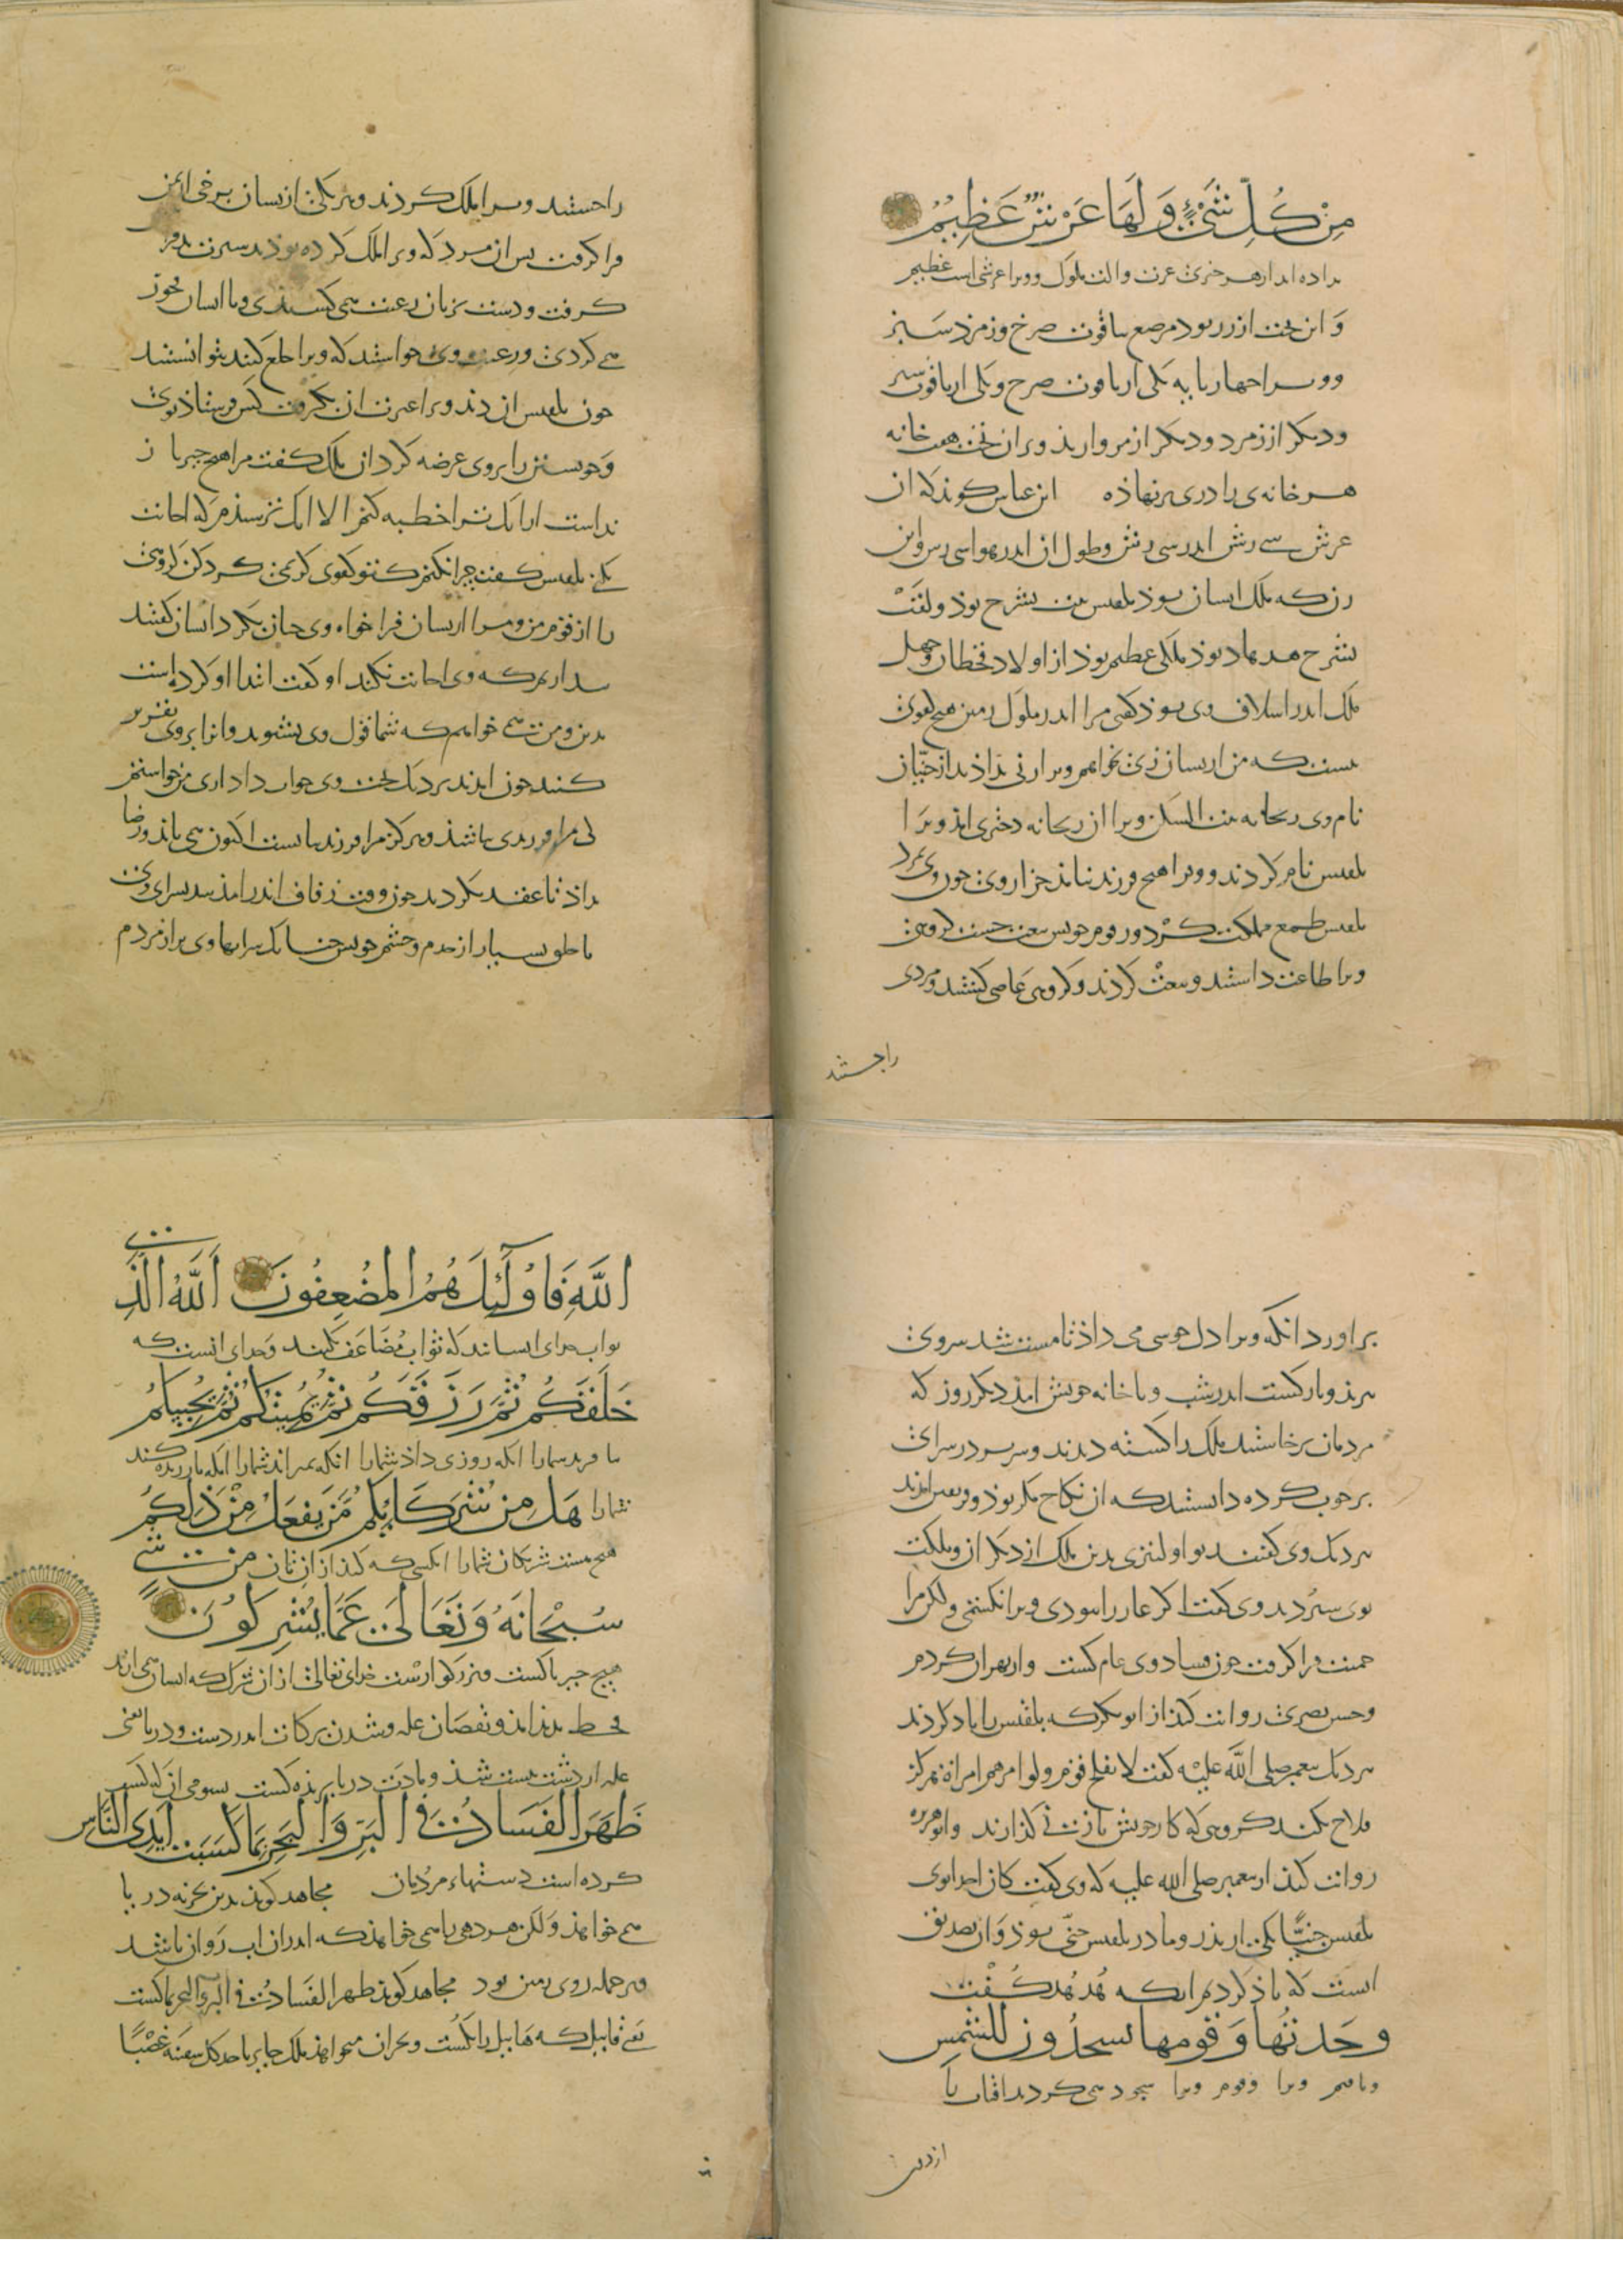 مِنْ كُلِّ شَيْءٍ وَلَهَا عَرْشٌ عَظِيمٌ
داده اند از هر چیزی عزت والت ملوک وویرا عرشی است عظیم
وَ این تخت از زر بود مرصع بیاقوت سرخ وزمرد سبز
وویرا چهار پایه یکی از یاقوت سرخ ویکی از یاقوت سبز
ودیگر از زمرد ودیگر از مروارید وبران تخت هفت خانه
هر خانه ی را دری برنهاذه ابن عباس گوید که ان
عرش سی رش اندر سی رش وطول ان اندر هوا سی رش واین
زن که ملک ایشان بوذ بلقیس بنت یشرح بوذ ولقب
یشرح هدهاد بوذ ملکی عظیم بوذ از اولاد قحطان وچهل
ملک اندر اسلاف وی بوذ گفتی مرا اندر ملوک زمین هیچ کفوی
نیست که من از یشان زنی بخواهم ویرا زنی داذند از جنیان
نام وی ریحانه بنت السکن ویرا از ریحانه دختری امد ویرا
بلقیس نام کردند وویرا هیچ فرزند نماند جز از وی چون وی بمرد
بلقیس طمع مملکت کرد وز قوم خویش بیعت جست گروهی
ویرا طاعت داشتند وبیعت کردند وگروهی عاصی گشتند ومردی
راجستند
را جستند وویرا ملک کردند وهر یکی از یشان برخی از زمین
فرا گرفت پس ان مرد که ویرا ملک کرده بوذند سیرت بد فرا
گرفت ودست بزنان رعیت همی کشیدی وبا ایشان فجور
می کردی ورعیت وی خواستند که ویرا خلع کنند نتوانستند
چون بلقیس ان دید ویرا غیرت ان بگرفت کس فرستاذ بوی
وخویشتن را بروی عرضه کرد ان ملک گفت مرا هیچ چیز باز
نداشت از انک ترا خطبه کنم الا انک نترسیدم که اجابت
نکنی بلقیس گفت چرا نکنم که تو کفوی کریمی گرد کن گروهی
را از قوم من ومرا از یشان فرا خواه وی چنان بکرد ایشان گفتند
نپنداریم که وی اجابت نکند او گفت ابتدا او کرده است
بدین ومن می خواهم که شما قول وی بشنوید وانرا بروی تقریر
کنید چون امدند بنزدیک بلقیس وی جواب داد اری من خواستم
کی مرا فرزندی باشد وهرگز مرا فرزند بایست اکنون همی باید ورضا
داذ تا عقد بکردند چون وقت زفاف اندر امد بسرای وی شد
با خلق بسیار از خدم وحشم خویش چنانک سراهاء وی پر از مردم
براورد انگه ویرا دل خوشی می داذ تا مست شد سر وی
ببرید وبازگشت اندر شب وبا خانه خویش امد دیگر روز که
مردمان برخاستند ملک را کشته دیدند وسر بر در سرای
بر چوب کرده دانستند که ان نکاح مکر بوذ وفریب امدند
بنزدیک وی گفتند تو اولیتری بدین ملک از دیگران ومملکت
بوی سپردند وی گفت اگر عار را نبودی ویرا نکشتمی ولکن مرا
حمیت فرا گرفت چون فساد وی عام گشت واز بهر ان کردم
وحسن بصری روایت کند از ابو بکره که بلقیس را یاد کردند
نزدیک پیغمبر صلی اللّه علیْه گفت لا یفلح قوم ولوا امرهم امراة هرگز
فلاح نکنند گروهی که کار خویش با زنی گذارند وابو هریره
روایت کند از پیغمبر صلی الله علیه که وی گفت کان احد ابوی
بلقیس جنیًّا یکی از پذر ومادر بلقیس جنّی بوذ وان تصدیق
انست که یاذ کردیم انک هُدهُد گُفت
وَجَدتُها وَقومَها یَسجُدُونَ لِلشَمسِ
ویافتم ویرا وقوم ویرا سجود همی کردند افتاب را
از دون
اللَّهِ فَاُولَئِكَ هُمُ الْمُضْعِفُونَ اَللَّهُ الَّذِي
ثواب خدای ایشانند که ثواب مُضَاعَف کنند وخدای انست که
خَلَقَكُمْ ثُمَّ رَزَقَكُمْ ثُمَّ يُمِيتُكُمْ ثُمَّ يُحْيِيكُمْ
بیافرید شمارا انگه روزی داذ شمارا انگه بمیراند شمارا انگه باز زنده کند
شمارا هَلْ مِنْ شُرَكَائِكُمْ مَنْ يَفْعَلُ مِنْ ذَلِكُمْ
هیچ هست شریکان شمارا انکسی که کند از ان تان مِنْ شَيْءٍ
سُبْحَانَهُ وَتَعَالَى عَمَّا يُشْرِكُونَ
هیچ چیز پاکست وبزرگوارست خدای تعالی از ان شرک که ایشان همی ارند
قحط پدید امد ونقصان غله وشدن برکات اندر دشت ودر یا یعنی
غله از دشت نیست شد ومادّت دریا بریده گشت بشومی انک کسب
ظَهَرَ الْفَسَادُ فِي الْبَرِّ وَالْبَحْرِ بِمَا كَسَبَتْ اَيْدِي النَّاسِ
کرده است دستهاء مردمان مجاهد گوید بدین بحر نه دریا
می خواهذ وَلکن هر دهی را همی خواهذ که اندران اب رَوان باشد
وبر جمله روی زمین بود مجاهد گوید ظهر الفَسادُ فی البر والبحر بما کسبت
یعنی قابیل که هابیل را بکُشت وبحر ان میخواهد ملک جایر یاخذ کل سفینة غصْبًا